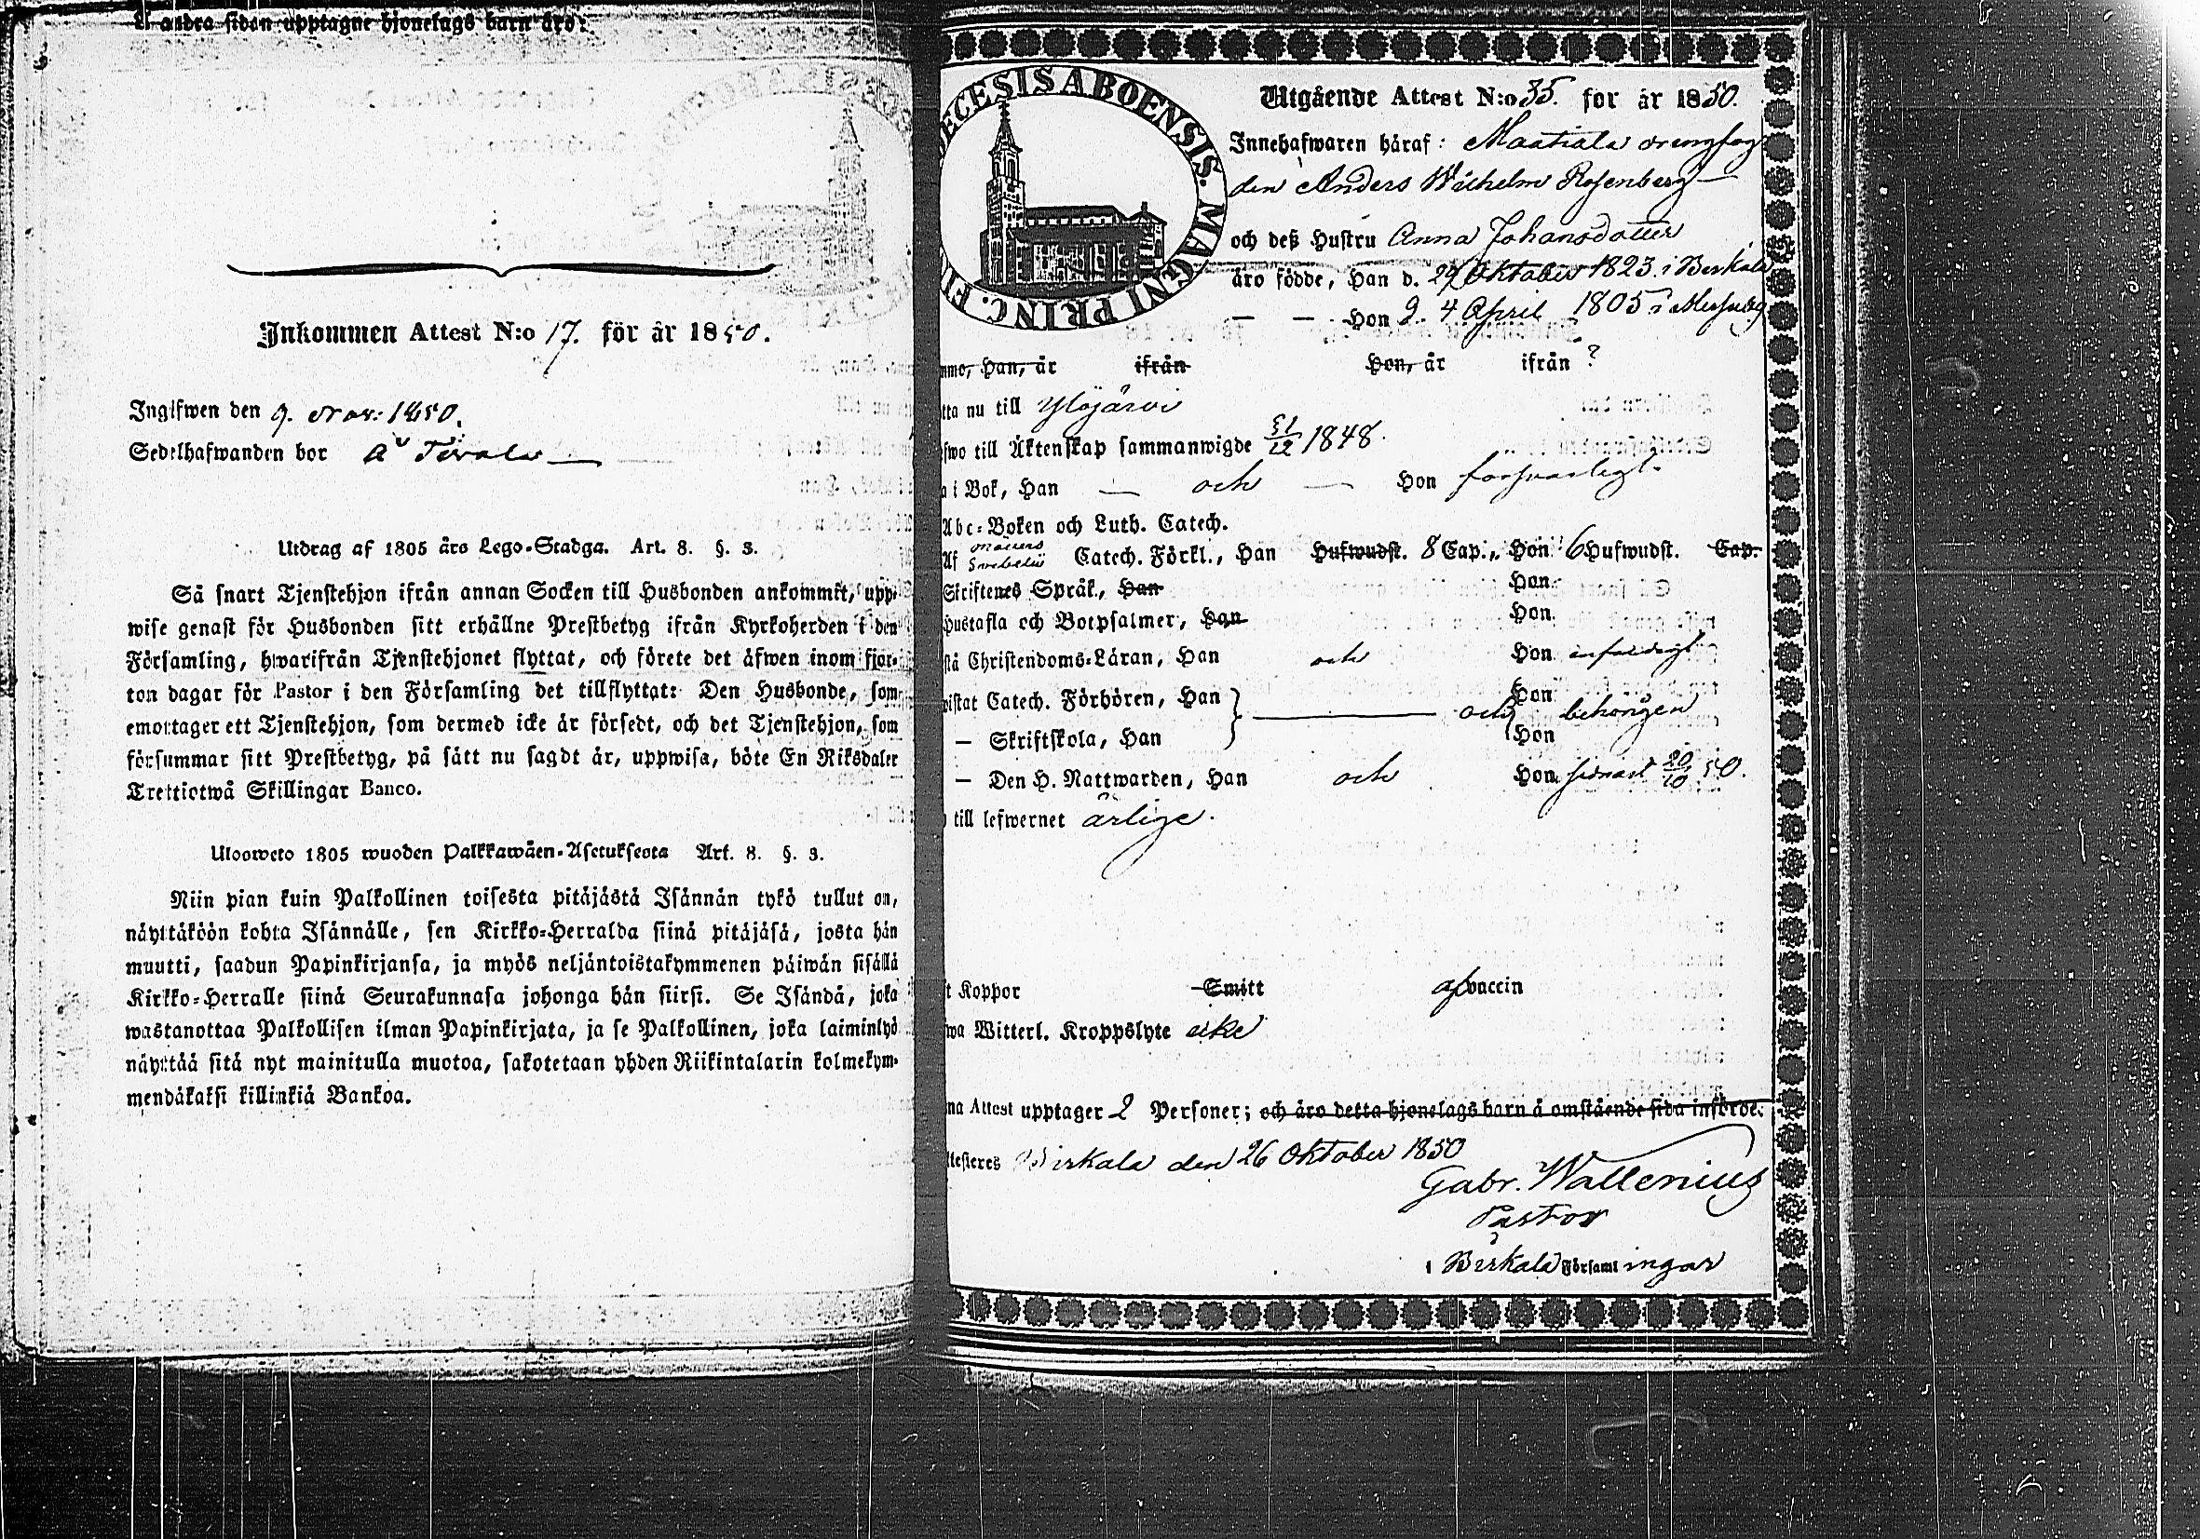 Å andra sidan upptagne hjonelags barn äro:
Inkommen Attest N:o 17. för år 1850.
Ingifwen den 9. Nov: 1850.
Sedelhafwanden bor å
Utdrag af 1805 års Lego-Stadga. Art. 8. §. 3.
Så snart Tjenstehjon ifrån annan Socken till Husbonden ankommit, upp-
wise genast för Husbonden sitt erhållne Prestbetyg ifrån Kyrkoherden i den
Församling, hwarifrån Tjenstehjonet flyttat, och förete det äfwen inom fjor-
ton dagar för Pastor i den Församling det tillflyttat: Den Husbonde, som
emottager ett Tjenstehjon, som dermed icke är försedt, och det Tjenstehjon, som
försummar sitt Prestbetyg, på sätt nu sagdt är, uppwisa, böte En Riksdaler
Trettiotwå Skillingar Banco.
Ulosweto 1805 wuoden Palkkawäen-Asetuksesta Art. 8. §. 3.
Niin pian kuin Palkollinen toisesta pitäjästä Isännän tykö tullut on,
näyttäköön kohta Isännälle, sen Kirkko-Herralda siinä pitäjäsä, josta hän
muutti, saadun Papinkirjansa, ja myös neljäntoistakymmenen päiwän sisällä
Kirkko-Herralle siinä Seurakunnasa johonga hän siirsi. Se Isändä, joka
wastanottaa Palkollisen ilman Papinkirjata, ja se Palkollinen, joka laiminlyö
näyttää sitä nyt mainitulla muotoa, sakotetaan yhden Riikintalarin kolmekym-
mendäkaksi killinkiä Bankoa.
ECESIS ABOENSIS. MAGNI PRINC. FI
Utgående Attest N:o 35. for år 1850.
Innehafwaren häraf: Maatiala
den Anders Wilhelm Rosenberg
och deß Hustru Anna Johansdotter
äro födde, Han d. Oktober 1823 i Birkala
— — Hon d. 4 April 1805 i
mmo, Han, är ifrån Hon, är ifrån ?
tta nu till Ylöjärvi
fwo till Äktenskap sammanwigde 31/12 1848.
a i Bok, Han — och — Hon forsvarligt.
Abc-Boken och Luth. Catech.
Af Svebelii Catech. Förkl., Han Hufwudst. 8 Cap., Hon 6 Hufwudst. Cap.
Skriftenes Språk, Han Hon
Hustafla och Botpsalmer, Han Hon
stå Christendoms-Läran, Han och Hon enfaldigt
wistat Catech. Förhören, Han — och Hon behörigen
— Skriftskola, Han Hon
— Den H. Nattwarden, Han och Hon sednast 20/10 50.
till lefwernet ärlige.
t Koppor Smitt af vaccin
wa Witterl. Kroppslyte icke
na Attest upptager 2 Personer; och äro detta hjonelags barn å omstående sida införde.
ttesteres Birkala den 26 Oktober 1850
Gabr. Wallenius
Pastor
i Birkala Församl ingar